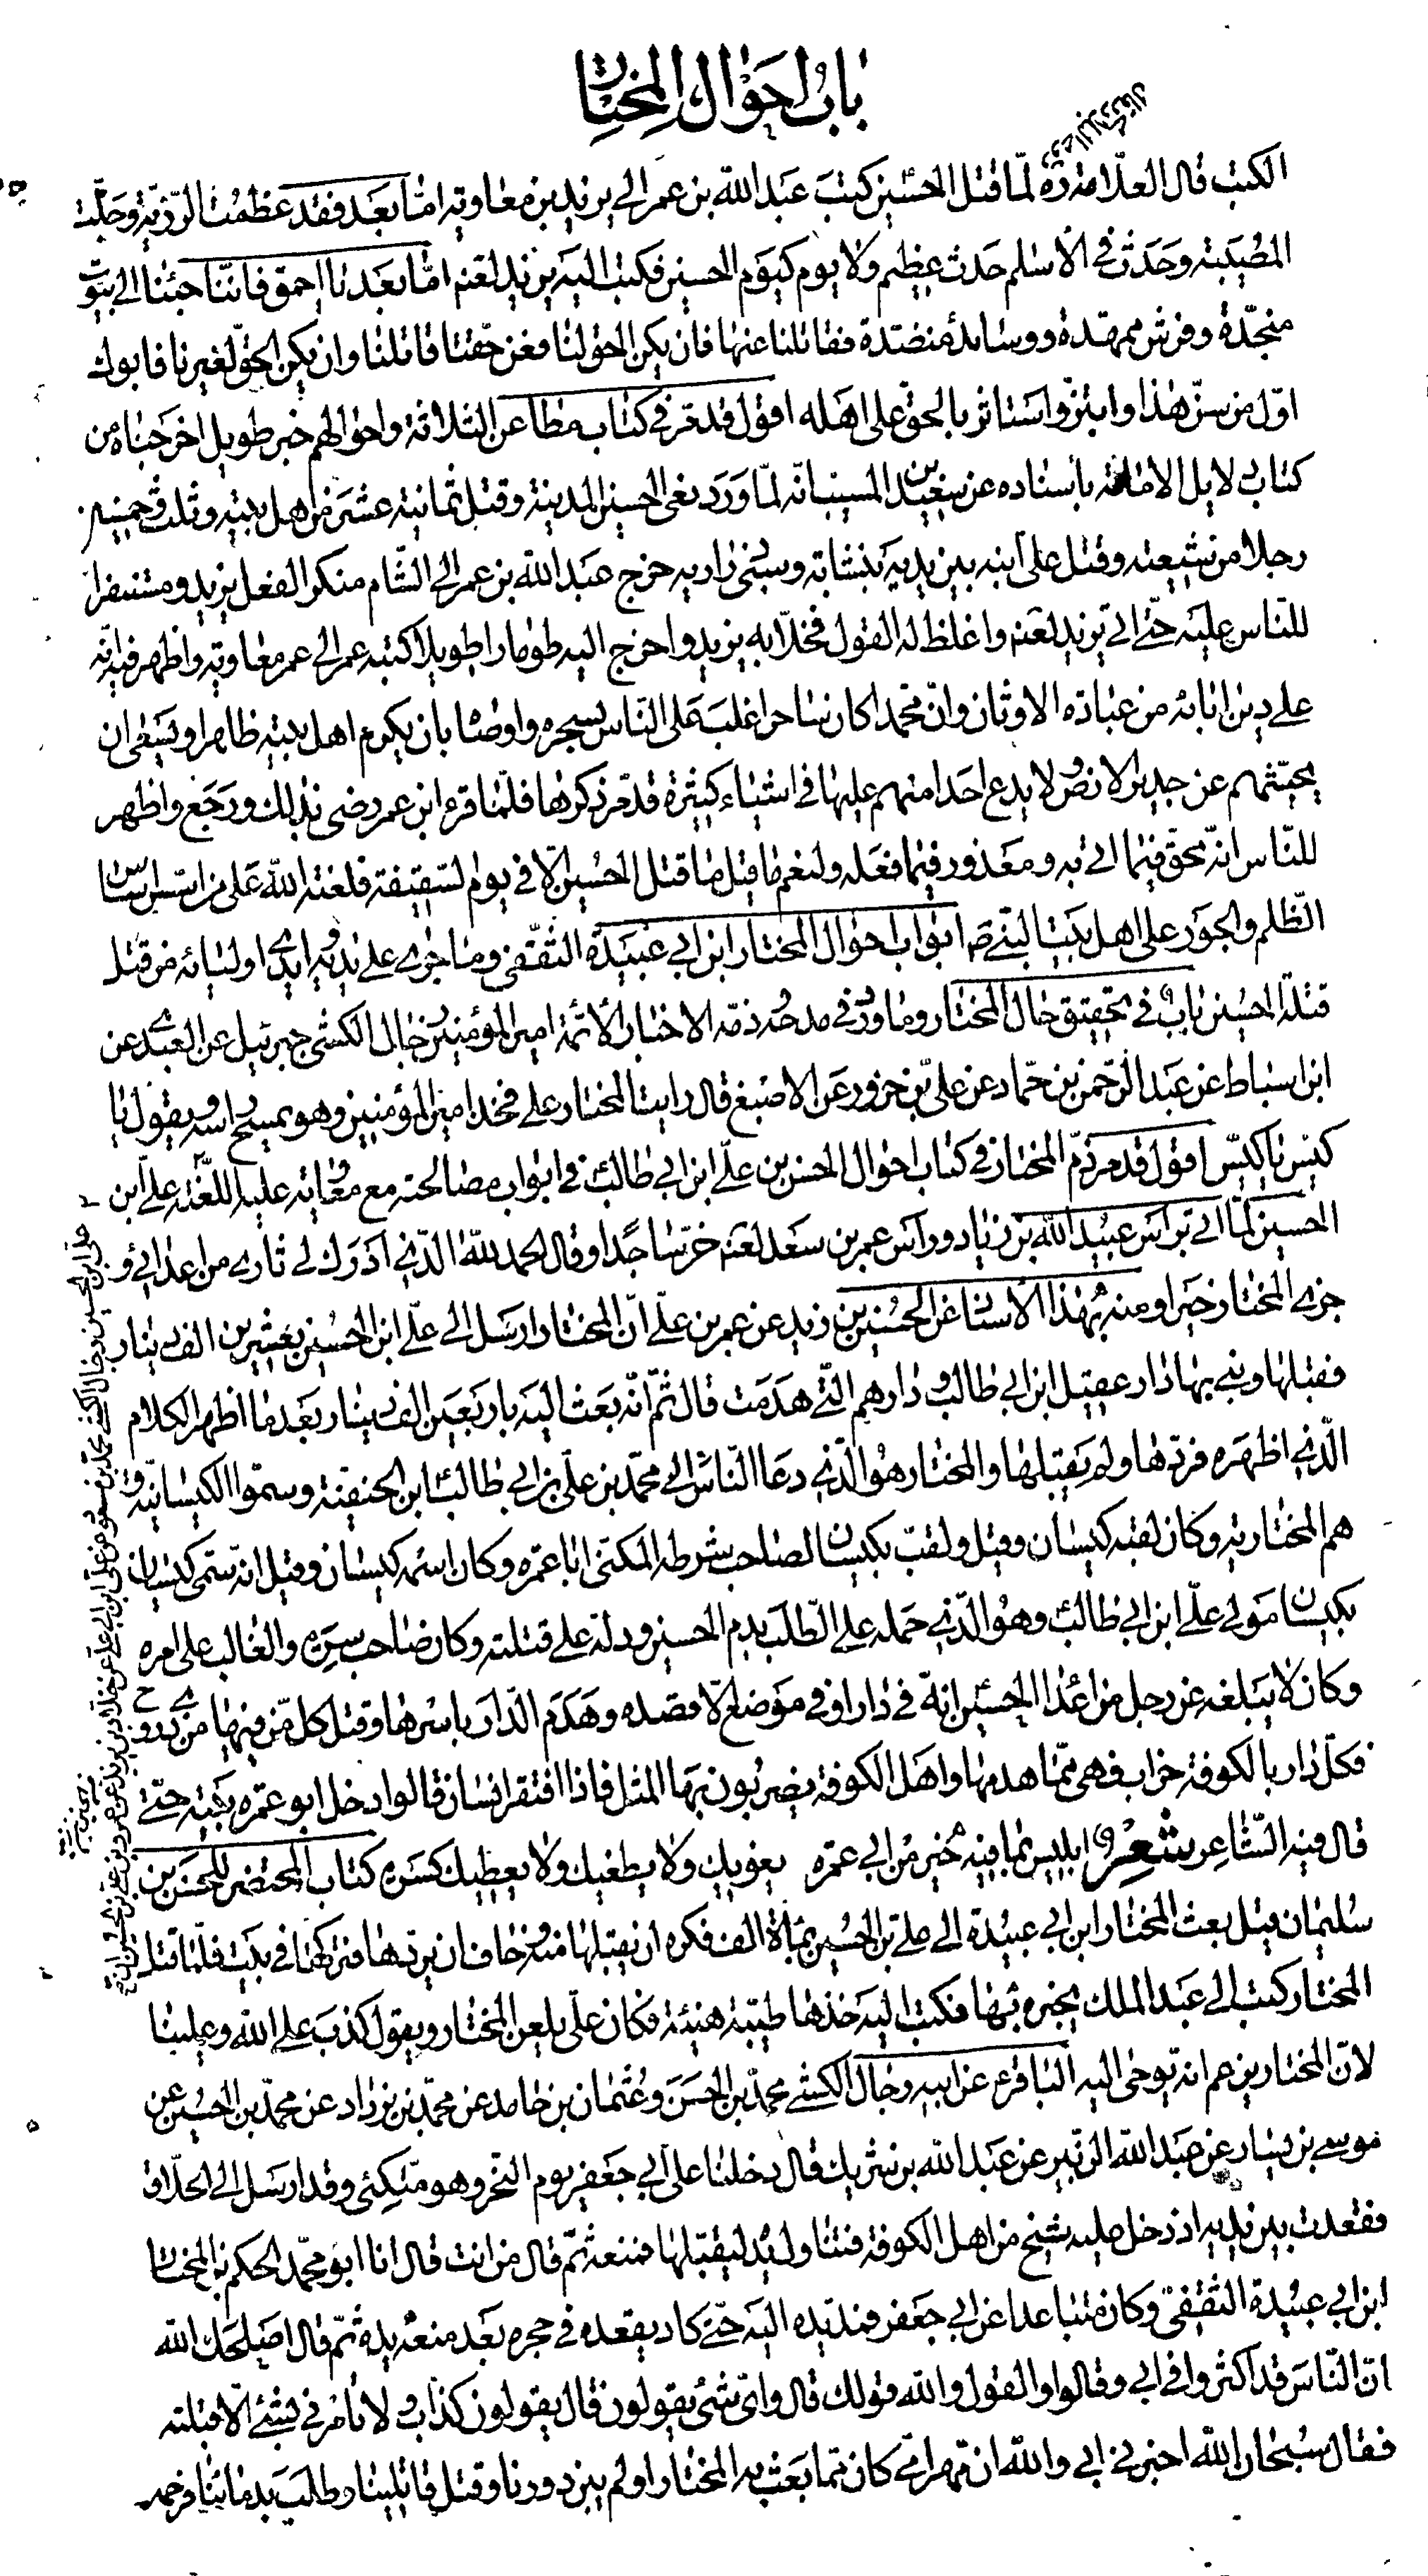 باب احوال المختار
الكتب قال العلامة ره لما قتل الحسين كتب عبد الله بن عمر الى يزيد بن معاوية اما بعد فقد عظمت الرزية وجلت
المصيبة وحدث في الاسلم حدث عظيم ولا يوم كيوم الحسين فكتب اليه يزيد لعنه اما بعد يا احمق فاننا جئنا الى بيوت
منجدة وفرش ممهدة ووسائد منضدة فقاتلنا عنها فان يكن الحق لنا فعن حقنا قاتلنا وان يكن الحق لغيرنا فابوك
اول من سن هذا وابتز واستاثر بالحق على اهله اقول قد مر في كتاب مطاعن الثلاثة واحوالهم خبر طويل اخرجناه من
كتاب دلايل الامامة باسناده عن سعيد بن المسيب انه لما ورد نعى الحسين المدينة وقتل ثمانية عشر من اهل بيته وثلث وخمسين
رجلا من شيعته وقتل على ابنه بين يديه بنشابة وسبى ذراريه خرج عبد الله بن عمر الى الشام منكرا لفعل يزيد ومستنفرا
للناس عليه حتى اتى يزيد لعنه واغلظ له القول فخلا به يزيد واخرج اليه طومارا طويلا كتبه عمر الى عمر معاوية واظهر فيه انه
على دين ابائه من عبادة الاوثان وان محمدا كان ساحرا غلب على الناس بسحره واوصاه بان يكرم اهل بيته ظاهرا ويسعى ان
يجتثهم عن جديد الارض ولا يدع احدا منهم عليها في اشياء كثيرة قد مر ذكرها فلما قرء ابن عمر رضى بذلك ورجع واظهر
للناس انه محق فيما اتى به ومعذور فيما فعله ولنعم ما قيل ما قتل الحسين الا في يوم السقيفة فلعنة الله على من اسس اساس
الظلم والجور على اهل بيت النبي ص ابواب احوال المختار ابن ابي عبيدة الثقفى وما جرى على يديه وايدى اوليائه من قتل
قتلة الحسين باب في تحقيق حال المختار وما ورد في مدحه وذمه الاخبار الائمة امير المؤمنين رجال الكشى جبرئيل عن العبيدى عن
ابن اسباط عن عبد الرحمن بن حماد عن علي بن حزور عن الاصبغ قال رايت المختار على فخذ امير المؤمنين وهو يمسح راسه ويقول يا
كيس يا كيس اقول قد مر ذم المختار في كتاب احوال الحسن بن علي ابن ابي طالب في ابواب مصالحته مع معاوية عليه اللعنة علي ابن
الحسين لما اتى براس عبيد الله بن زياد وراس عمر بن سعد لعنه خر ساجدا وقال الحمد لله الذي ادرك لي ثاري من اعدائي و
جزى المختار خيرا ومنه بهذا الاسناد عن الحسين بن زيد عن عمر بن علي ان المختار ارسل الى علي ابن الحسين بعشرين الف دينار
فقبلها وبنى بها دار عقيل ابن ابي طالب ودارهم التي هدمت قال ثم انه بعث اليه باربعين الف دينار بعدما اظهر الكلام
الذي اظهره فردها ولم يقبلها والمختار هو الذي دعا الناس الى محمد بن علي بن ابي طالب ابن الحنفية وسموا الكيسانية و
هم المختارية وكان لقبه كيسان وقيل ولقب بكيسان لصاحب شرطه المكنى ابا عمره وكان اسمه كيسان وقيل انه سمى كيسان
بكيسان مولى علي ابن ابي طالب وهو الذي حمله على الطلب بدم الحسين ودله على قتلته وكان صاحب سره والغالب على امره
وكان لا يبلغه عن رجل من اعداء الحسين انه في دار او في موضع الا قصده وهدم الدار باسرها وقتل كل من فيها من ذي روح
فكل دار بالكوفة خراب فهى مما هدمها واهل الكوفة يضربون بها المثل فاذا افتقر انسان قالوا دخل ابو عمره بيته حتى
قال فيه الشاعر شعر ابليس بما فيه خير من ابي عمره يغويك ولا يطغيك ولا يعطيك كسره كتاب المحتضر للحسن بن
سليمان قيل بعث المختار ابن ابي عبيدة الى علي بن الحسين بمأة الف فكره ان يقبلها منه وخاف ان يردها فتركها في بيت فلما قتل
المختار كتب الى عبد الملك يخبره بها فكتب اليه خذها طيبة هنيئة فكان علي يلعن المختار ويقول كذب على الله وعلينا
لان المختار يزعم انه يوحى اليه الباقرع عن ابيه رجال الكشي محمد بن الحسن وعثمان بن حامد عن محمد بن يزداد عن محمد بن الحسين عن
موسى بن يسار عن عبد الله الزبير عن عبد الله بن شريك قال دخلنا على ابي جعفر يوم النحر وهو متكئ وقد ارسل الى الحلاق
فقعدت بين يديه اذ دخل عليه شيخ من اهل الكوفة فتناول يده ليقبلها فمنعه ثم قال من انت قال انا ابو محمد الحكم بن المختار
ابن ابي عبيدة الثقفي وكان متباعدا عن ابي جعفر فمد يده اليه حتى كاد يقعده في حجره بعد منعه يده ثم قال اصلحك الله
ان الناس قد اكثروا في ابي وقالوا والقول والله قولك قال واي شئ يقولون قال يقولون كذاب ولا تامرني بشئ الا قبلته
فقال سبحان الله اخبرني ابي والله ان مهر امي كان مما بعث به المختار اولم يبن دورنا وقتل قاتلينا وطلب بدمائنا فرحمه